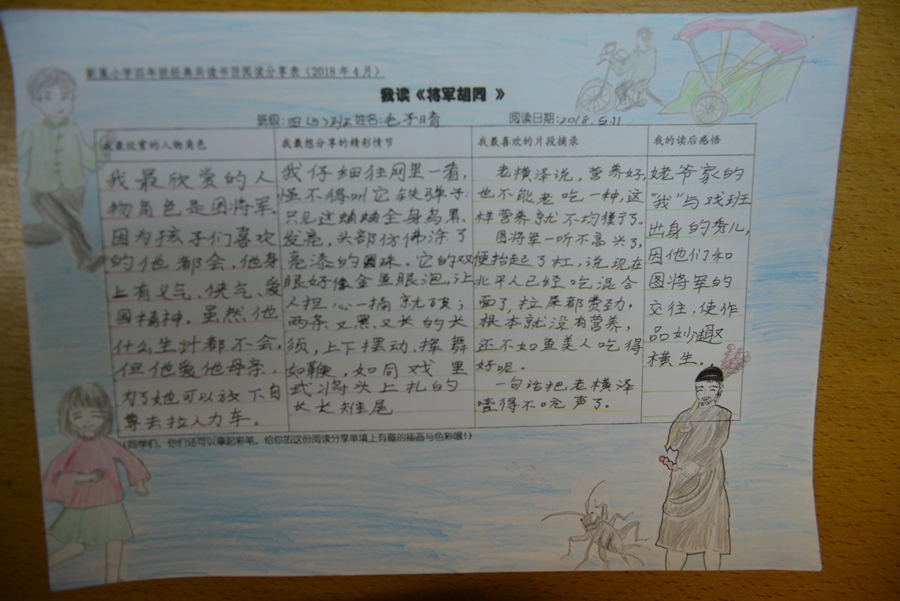 附属小学四年级经典共读书目阅读分享表（2018年4月）
我读《将军胡同 》
班级: 四(5)班 姓名: 阅读日期:2018.5.11
我最欣赏的人物角色
我最欣赏的人
物角色是图将军。
因为孩子们喜欢
的他都会，他身
上有义气、侠气、爱
国精神。虽然他
什么生计都不会，
但他爱他母亲，
为了她可以放下自
尊去拉人力车。
我最想分享的精彩情节
我仔细往网里一看，
怪不得叫它铁弹子:
只见这蛐蛐全身乌黑、
发亮，头部仿佛涂了
亮漆的圆珠。它的双
眼好像金鱼眼泡，让
人担心一捅就破；
两条又黑、又长的长
须，上下摆动、挥舞
如鞭，如同戏里
武将头上扎的
长长雉尾
我最喜欢的片段摘录
老横泽说，营养好，
也不能老吃一种，这
样营养就不均衡了。
图将军一听不高兴了，
便抬起了杠，说现在
北平人已经吃混合
面了，拉屎都费劲。
根本就没有营养，
还不如鱼美人吃得
好呢。
一句话把老横泽
噎得不吭声了。
我的读后感悟
姥爷家的
“我”与戏班
出身的秀儿，
因他们和
图将军的
交往，使作
品妙趣
横生。
（同学们，你们还可以拿起彩笔，给你的这份阅读分享单填上有趣的插画与色彩哦！）